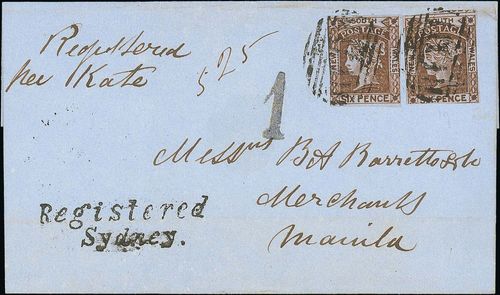 Registered
per Kate
525
1
SOUTH
NEW
WALES
SIX PENCE
SOUTH
NEW
WALES
SIX PENCE
Messrs B A Barretto & Co
Merchants
Manila
Registered
Sydney.